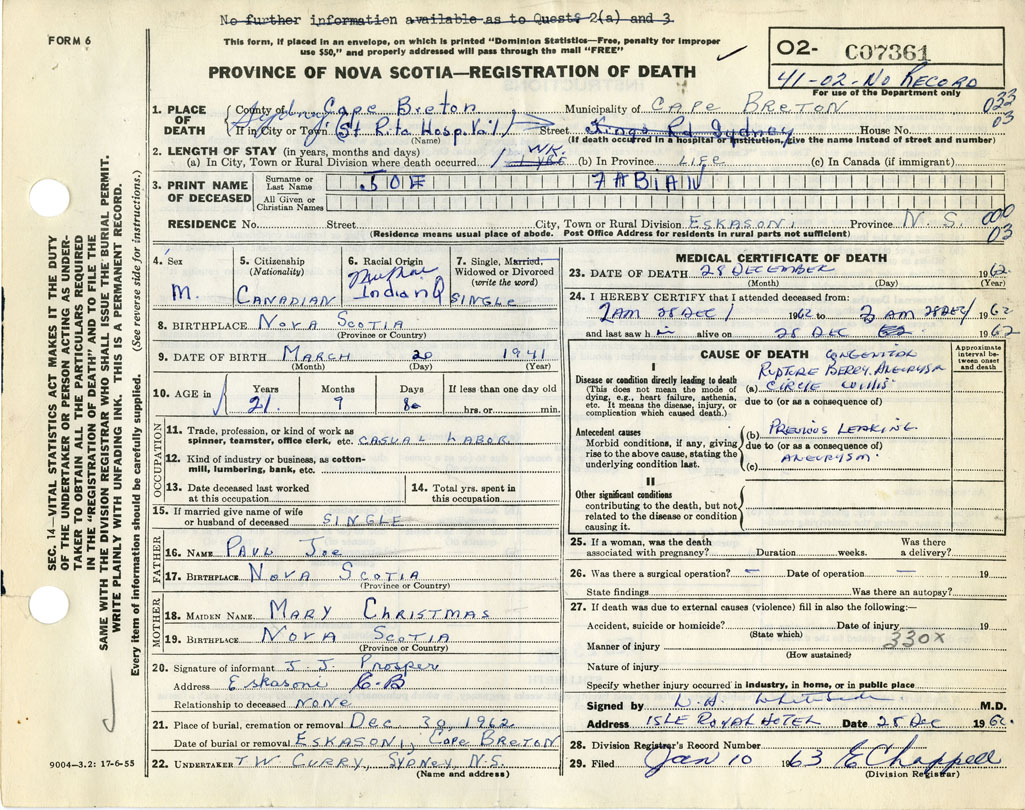 No further information available as to Quests 2(a) and 3
FORM 6
This form, if placed in an envelope, on which is printed "Dominion Statistics—Free, penalty for improper
use $50," and properly addressed will pass through the mail "FREE"
PROVINCE OF NOVA SCOTIA—REGISTRATION OF DEATH
02- C07361
41-02-No Record
For use of the Department only
033
03
1. PLACE OF DEATH
County of Cape Breton Municipality of CAPE BRETON
If in City or Town Sydney (St Rita Hospital) Street Kings Rd Sydney House No.
(Name) (If death occurred in a hospital or institution, give the name instead of street and number)
2. LENGTH OF STAY (in years, months and days)
(a) In City, Town or Rural Division where death occurred 1 WK. (b) In Province LIFE (c) In Canada (if immigrant)
3. PRINT NAME OF DECEASED
Surname or Last Name JOE FABIAN
All Given or Christian Names
RESIDENCE No. Street City, Town or Rural Division ESKASONI Province N.S.
000
03
(Residence means usual place of abode. Post Office Address for residents in rural parts not sufficient)
SEC. 14—VITAL STATISTICS ACT MAKES IT THE DUTY
OF THE UNDERTAKER OR PERSON ACTING AS UNDER-
TAKER TO OBTAIN ALL THE PARTICULARS REQUIRED
IN THE "REGISTRATION OF DEATH" AND TO FILE THE
SAME WITH THE DIVISION REGISTRAR WHO SHALL ISSUE THE BURIAL PERMIT.
WRITE PLAINLY WITH UNFADING INK. THIS IS A PERMANENT RECORD.
Every item of information should be carefully supplied. (See reverse side for instructions.)
4. Sex
M.
5. Citizenship
(Nationality)
CANADIAN
6. Racial Origin
Indian
7. Single, Married,
Widowed or Divorced
(write the word)
SINGLE
8. BIRTHPLACE NOVA SCOTIA
(Province or Country)
9. DATE OF BIRTH MARCH 20 1941
(Month) (Day) (Year)
10. AGE in
Years 21
Months 9
Days 8
If less than one day old
hrs. or min.
OCCUPATION
11. Trade, profession, or kind of work as
spinner, teamster, office clerk, etc. CASUAL LABOR.
12. Kind of industry or business, as cotton-
mill, lumbering, bank, etc.
13. Date deceased last worked
at this occupation
14. Total yrs. spent in
this occupation
15. If married give name of wife
or husband of deceased SINGLE
FATHER
16. NAME PAUL JOE
17. BIRTHPLACE NOVA SCOTIA
(Province or Country)
MOTHER
18. MAIDEN NAME MARY CHRISTMAS
19. BIRTHPLACE NOVA SCOTIA
(Province or Country)
20. Signature of informant J. J. Prosper
Address Eskasoni C.B
Relationship to deceased NONE
21. Place of burial, cremation or removal Dec 30, 1962
Date of burial or removal ESKASONI, CAPE BRETON
22. UNDERTAKER T W CURRY, SYDNEY, N.S.
(Name and address)
9004—3.2: 17-6-55
MEDICAL CERTIFICATE OF DEATH
23. DATE OF DEATH 28 DECEMBER 1962
(Month) (Day) (Year)
24. I HEREBY CERTIFY that I attended deceased from:
2AM 28 DEC / 1962 to 3 AM 28 DEC / 1962
and last saw h im alive on 28 DEC 62 1962
CAUSE OF DEATH
Approximate interval between onset and death
I
Disease or condition directly leading to death
(This does not mean the mode of
dying, e.g., heart failure, asthenia,
etc. It means the disease, injury, or
complication which caused death.)
CONGENITAL
RUPTURE BERRY ANEURYSM
(a) CIRCLE WILLIS
due to (or as a consequence of)
Antecedent causes
Morbid conditions, if any, giving
rise to the above cause, stating the
underlying condition last.
(b) PREVIOUS LEAKING
due to (or as a consequence of)
ANEURYSM.
(c)
II
Other significant conditions
contributing to the death, but not
related to the disease or condition
causing it.
25. If a woman, was the death
associated with pregnancy? Duration weeks. Was there
a delivery?
26. Was there a surgical operation? — Date of operation — 19
State findings Was there an autopsy?
27. If death was due to external causes (violence) fill in also the following:—
Accident, suicide or homicide? Date of injury 19
(State which)
Manner of injury 330X
(How sustained)
Nature of injury
Specify whether injury occurred in industry, in home, or in public place
Signed by M.D.
Address ISLE ROYAL HOTEL Date 28 DEC 1962
28. Division Registrar's Record Number
29. Filed Jan 10 1963 E Chappell
(Division Registrar)